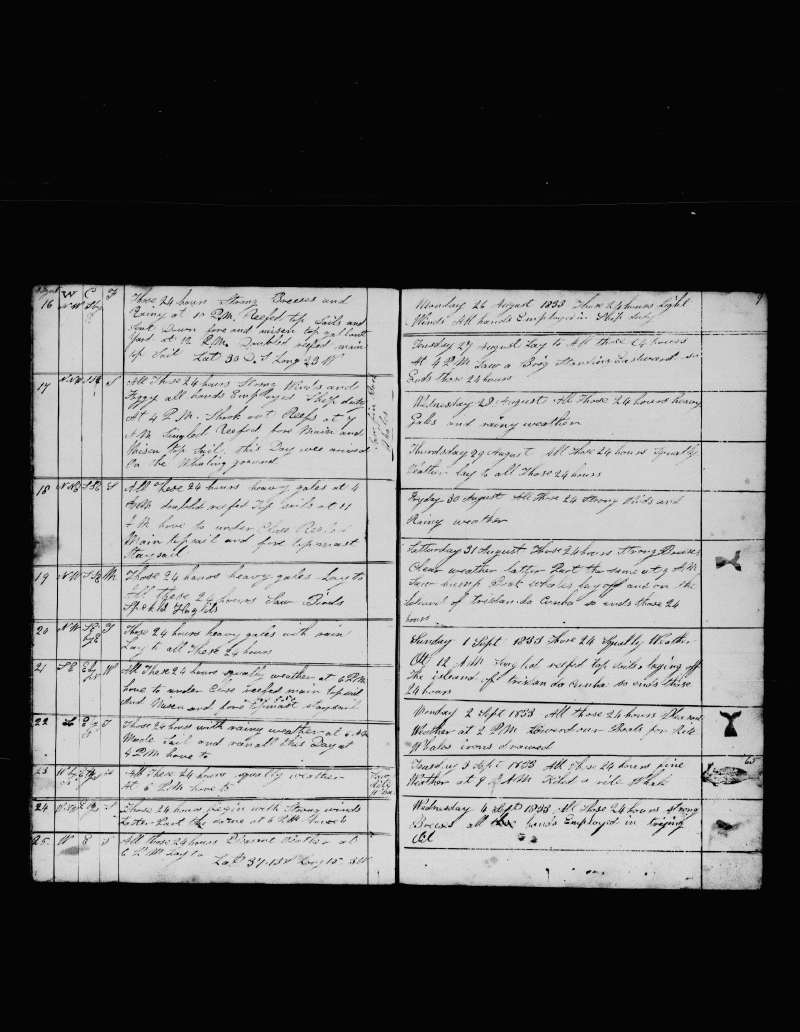 August W C F
16 N W
Those 24 hours Strong Breeses and
Rainy at 10 P.M. Reefed top Sails and
Sent Down fore and misen top gallant
Yard at 12 P.M. Doubled reefed main
top Sail Lat 30 S Long 23 W
17 S
All Those 24 hours Strong Winds and
Foggy all hands Employed Ships duty
At 4 P.M. Shook out Reefs at 7
A M Singled Reefed fore Main and
Misen top Sail, this Day was arrived
On the Whaling ground
18 S
All These 24 hours heavy gales at 4
A M doubled reefed Top sails at 11
A M hove to under Close Reefed
Main topsail and fore topmast
Staysail
19 N W S E M
Those 24 hours heavy gales Lay to
All these 24 hours Saw Birds
20 N W S E by E T
Those 24 hours heavy gales with rain
Lay to all These 24 hours
21 S E W
All These 24 hours squally weather at 6 P.M
hove to under Close reefed main topsail
And Misen and fore topmast staysail
22 T
Those 24 hours with rainy weather at 6 A M
Made Sail and ran all this Day at
4 P.M hove to
23
All These 24 hours squally weather
At 6 P.M hove to
24 S
Those 24 hours begin with Strong winds
Later Part the same at 6 P.M
25 W E S
All Those 24 hours Pleasant Weather at
6 P M Lay to
Lat 37.13 S Long 15. W
9
Monday 26 August 1833 Those 24 hours Light
Winds All hands Employed in Ship duty
Tuesday 27 August Lay to All those 24 hours
At 4 P M Saw a Brig Standing Eastward so
Ends those 24 hours
Wednesday 28 August All Those 24 hours Heavy
Gales and rainy weather
Thurdsday 29 August All Those 24 hours Squally
Weather lay to all Those 24 hours
Fryday 30 August All Those 24 Strong Winds and
Rainy weather
Satturday 31 August Those 24 hours Strong Breeses
Clear weather latter Part the same at 9 A M
Saw hump Back whales lay off and on the
Island of tristan da Cunha so ends those 24
hours
Sunday 1 Sept 1833 Those 24 Squally Weather
At 12 A M Singled reefed top sails laying off
The island of tristan da cunha so ends these
24 hours
Monday 2 Sept 1833 All those 24 hours Pleasant
Weather at 2 P M Lowered our Boats for Rite
Whales
Tuesday 3 Sept 1833 All These 24 hours fine
Weather at 8 A M Killed a rite Whale
65
Wednesday 4 Sept 1833 All Those 24 hours strong
Breeses all hands Employed in trying
Oil